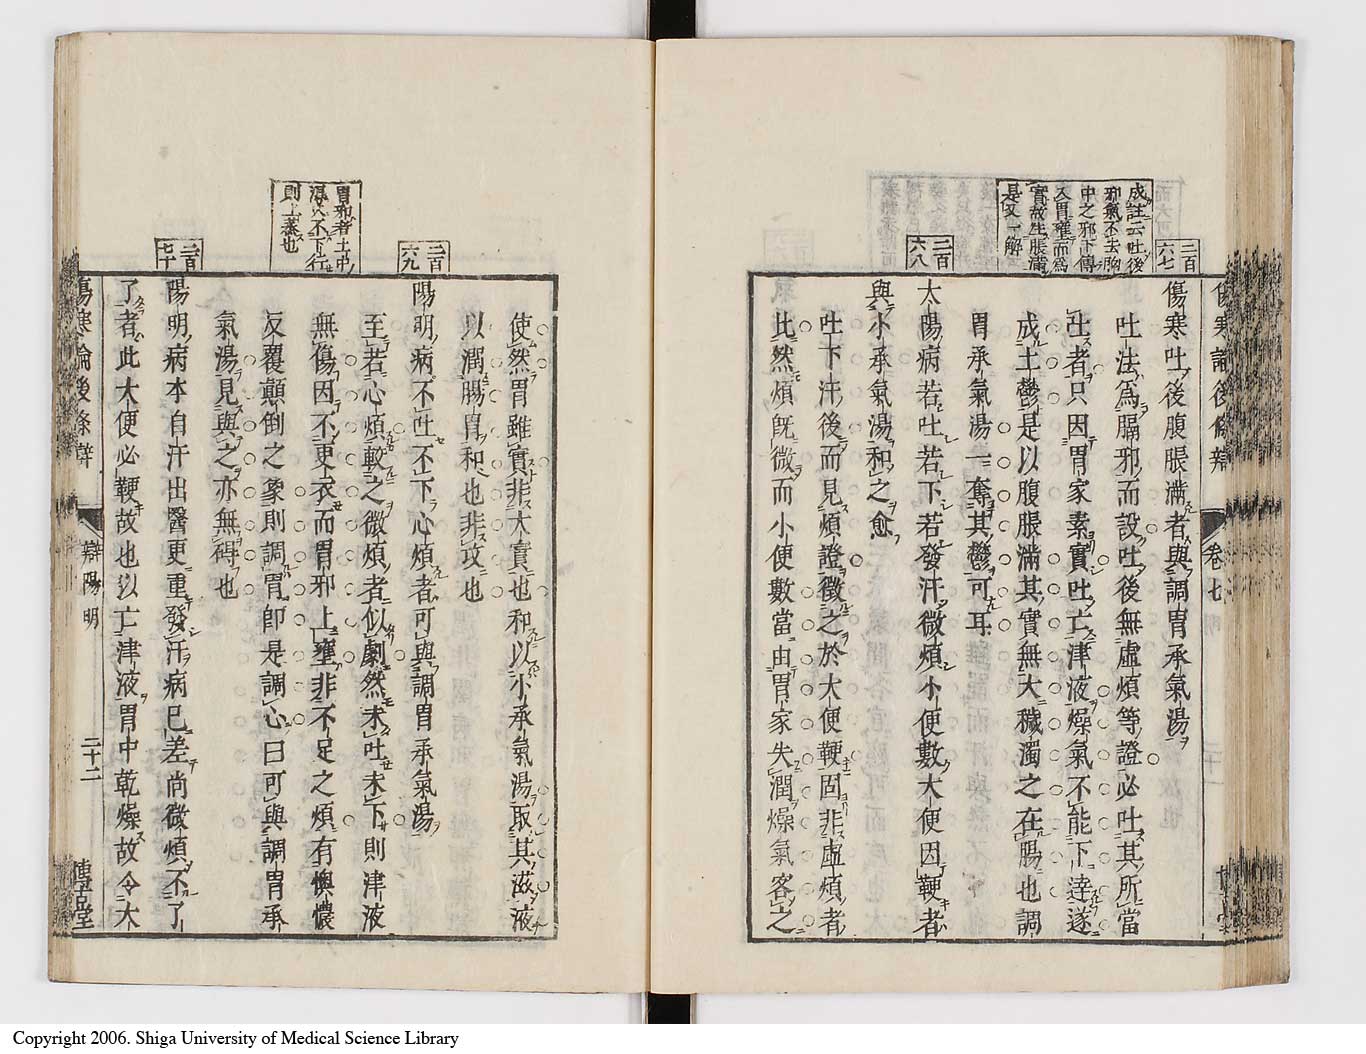 成註云吐後
邪氣不去胸
中之邪下傳
入胃壅而爲
實故生脹滿
是又一解
二百
六七
傷寒吐後腹脹滿者與調胃承氣湯
吐法爲膈邪而設吐後無虛煩等證必吐其所當
吐者只因胃家素實吐亡津液燥氣不能下達遂
成土鬱是以腹脹滿其實無大穢濁之在腸也調
胃承氣湯一奪其鬱可耳
二百
六八
太陽病若吐若下若發汗微煩小便數大便因鞕者
與小承氣湯和之愈
吐下汗後而見煩證徵之於大便鞕固非虛煩者
比然煩旣微而小便數當由胃家失潤燥氣客之
傷寒論後條辯
卷七
使然胃雖實非大實也和以小承氣湯取其滋液
以潤腸胃和也非攻也
二百
六九
陽明病不吐不下心煩者可與調胃承氣湯
胃邪者土中
則上蒸也
至若心煩較之微煩者似劇然未吐未下則津液
無傷因不更衣而胃邪上壅非不足之煩有懊憹
反覆顚倒之象則調胃卽是調心曰可與調胃承
氣湯見與之亦無碍也
二百
七十
陽明病本自汗出醫更重發汗病已差尚微煩不了
了者此大便必鞕故也以亡津液胃中乾燥故令大
傷寒論後條辯
辯陽明
二十二
博古堂
Copyright 2006. Shiga University of Medical Science Library